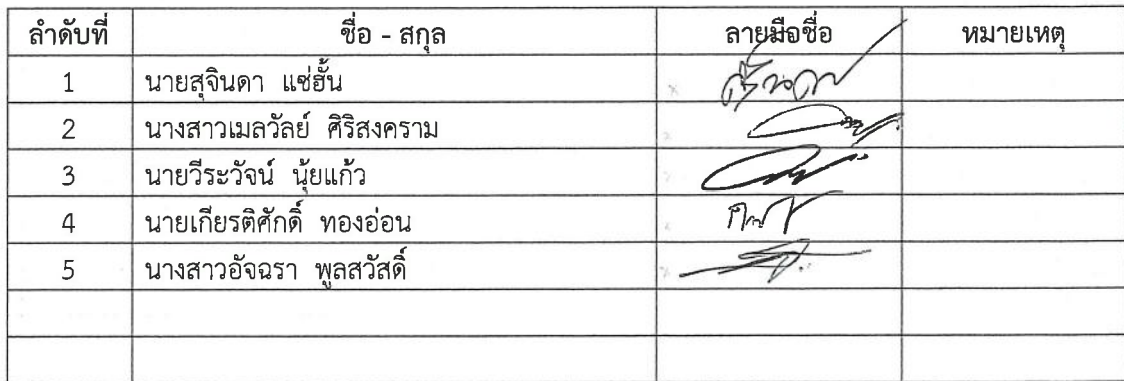 ลำดับที่ ชื่อ - สกุล ลายมือชื่อ หมายเหตุ
1 นายสุจินดา แซ่ฮั้น
2 นางสาวเมลวัลย์ ศิริสงคราม
3 นายวีระวัจน์ นุ้ยแก้ว
4 นายเกียรติศักดิ์ ทองอ่อน
5 นางสาวอัจฉรา พูลสวัสดิ์